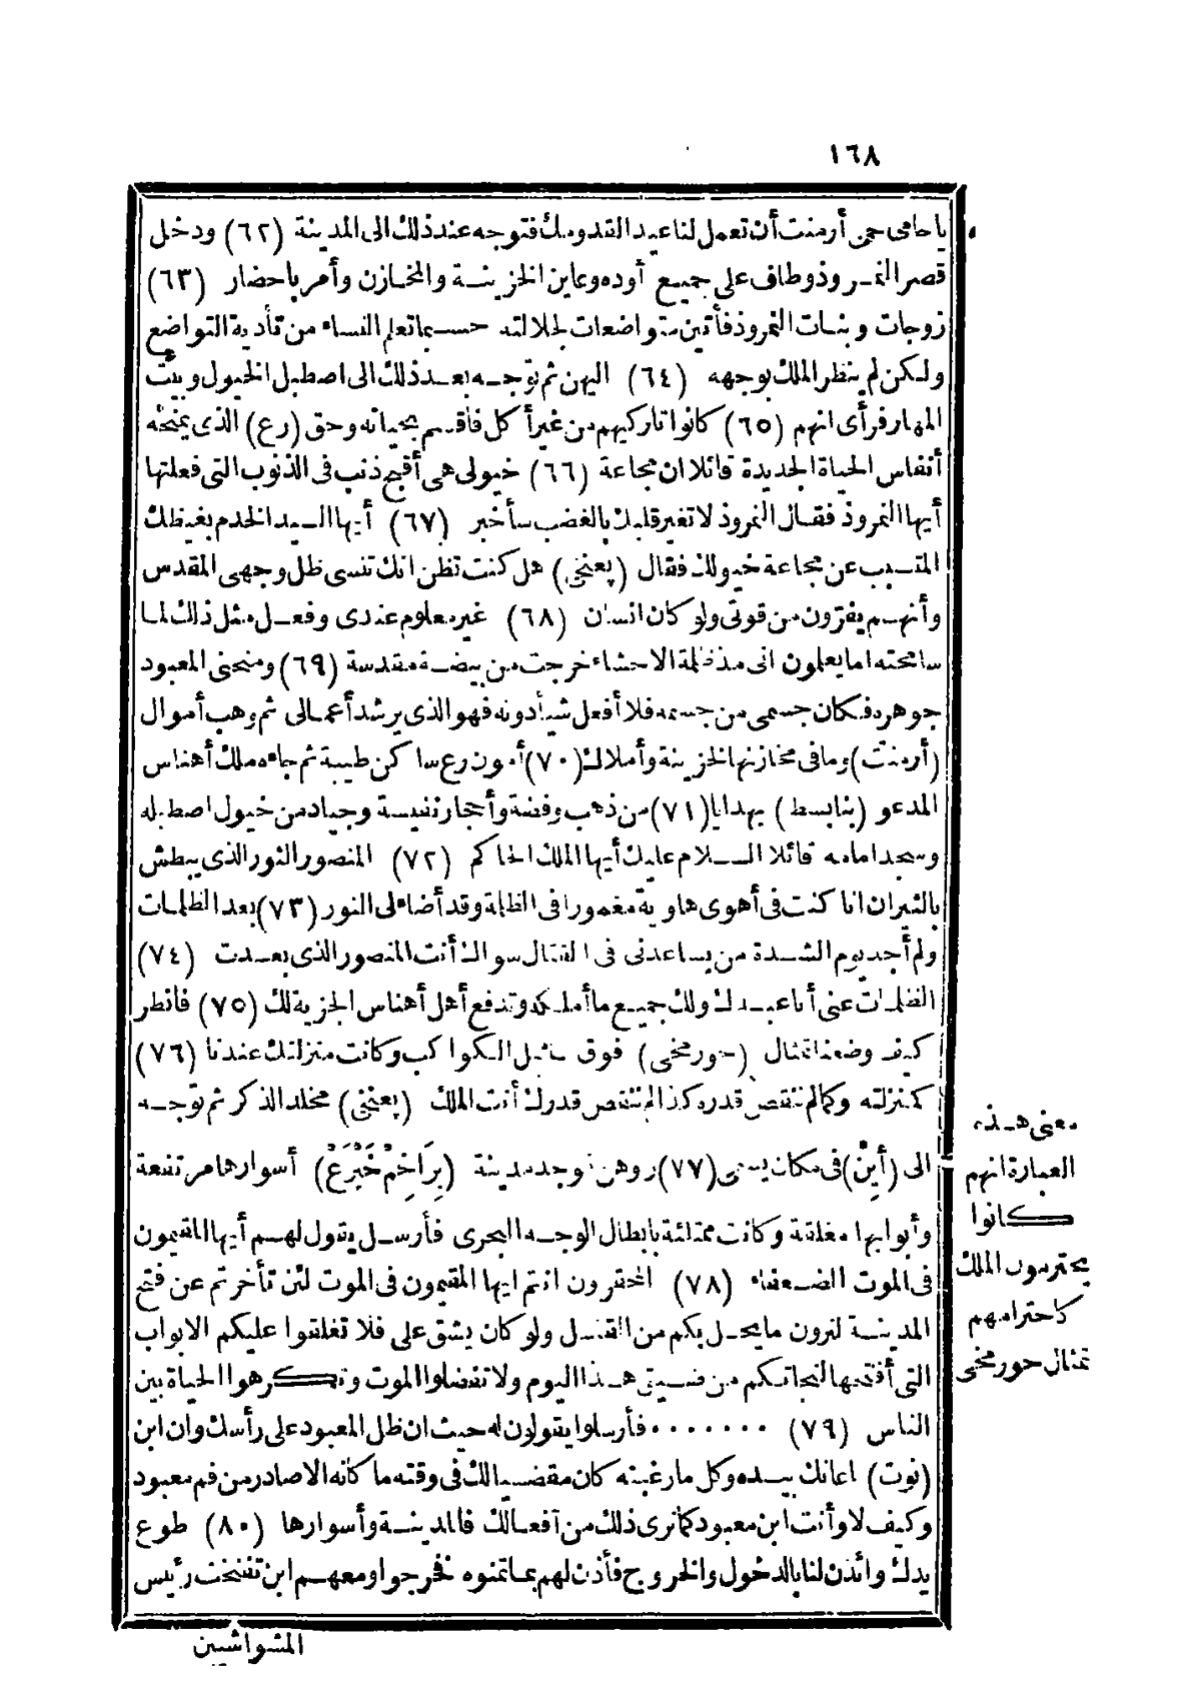 ١٦٨
يا حامى حمى أرمنت أن تعمل لنا عيد القدومك فتوجه عند ذلك الى المدينة (٦٢) ودخل
قصر النمروذ وطاف على جميع أوده وعاين الخزينة والمخازن وأمر باحضار (٦٣)
زوجات وبنات النمروذ فأتين متواضعات لجلالته حسبما تعلم النساء من تأدية التواضع
ولكن لم ينظر الملك بوجهه (٦٤) اليهن ثم توجه بعد ذلك الى اصطبل الخيول وبيت
المهار فرأى انهم (٦٥) كانوا تاركيهم من غير أكل فأقسم بحياته وحق (رع) الذى يمنحه
أنفاس الحياة الجديدة قائلا ان مجاعة (٦٦) خيولى هى أقبح ذنب فى الذنوب التى فعلتها
أيها النمروذ فقال النمروذ لا تغير قلبك بالغضب سأخبر (٦٧) أيها السيد الخدم بغيظك
المتسبب عن مجاعة خيولك فقال (پعنخى) هل كنت تظن انك تنسى ظل وجهى المقدس
وأنهم يفرّون من قوتى ولو كان انسان (٦٨) غير معلوم عندى وفعل مثل ذلك لما
سامحته اما يعلمون انى مذ ظلمة الاحشاء خرجت من بيضة مقدسة (٦٩) ومنحنى المعبود
جوهره فكان جسمى من جسمه فلا أفعل شيأ دونه فهو الذى يرشد أعمالى ثم وهب أموال
(أرمنت) وما فى مخازنها لخزينة وأملاك (٧٠) أمون رع ساكن طيبة ثم جاءه ملك أهناس
المدعو (بنابسط) بهدايا (٧١) من ذهب وفضة وأحجار نفيسة وجياد من خيول اصطبله
وسجد امامه قائلا السلام عليك أيها الملك الحاكم (٧٢) المنصور الثور الذى يبطش
بالثيران انا كنت فى أهوى هاوية مغمورا فى الظلمة وقد أضاء لى النور (٧٣) بعد الظلمات
ولم أجد يوم الشدة من يساعدنى فى القتال سواك أنت المنصور الذى بعدت (٧٤)
الظلمات عنى أنا عبدك ولك جميع ما أملكه وتدفع أهل أهناس الجزية لك (٧٥) فانظر
كيف وضعنا تمثال (حورمخى) فوق تمثال الكواكب وكانت منزلتك عندنا (٧٦)
كمنزلته وكما لم تنقص قدره كذا لم تنقص قدرك أنت الملك (پعنخى) مخلد الذكر ثم توجه
الى (أَبِنْ) فى مكان يسمى (٧٧) روهن فوجد مدينة (بِرَاخِمْ خُبْرَعْ) أسوارها مرتفعة
وأبوابها مغلقة وكانت ممتلئة بابطال الوجه البحرى فأرسل يقول لهم أيها المقيمون
فى الموت الضعفاء (٧٨) المحقرون انتم ايها المقيمون فى الموت لئن تأخرتم عن فتح
المدينة لترون ما يحل بكم من القتل ولو كان يشق على فلا تغلقوا عليكم الابواب
التى أفتحها لنجاتكم من ضيق هذا اليوم ولا تفضلوا الموت وتكرهوا الحياة بين
الناس (٧٩) ........ فأرسلوا يقولون له حيث ان ظل المعبود على رأسك وان ابن
(نوت) اعانك بيده وكل ما رغبته كان مقضيا لك فى وقته ما كأنه الا صادر من فم معبود
وكيف لا وأنت ابن معبود كما نرى ذلك من أفعالك فالمدينة وأسوارها (٨٠) طوع
يدك وائذن لنا بالدخول والخروج فأذن لهم بما تمنوه فخرجوا ومعهم ابن تفنخت رئيس
المشواشيين
معنى هذه
العبارة انهم
كانوا
يحترمون الملك
كاحترامهم
تمثال حورمخى